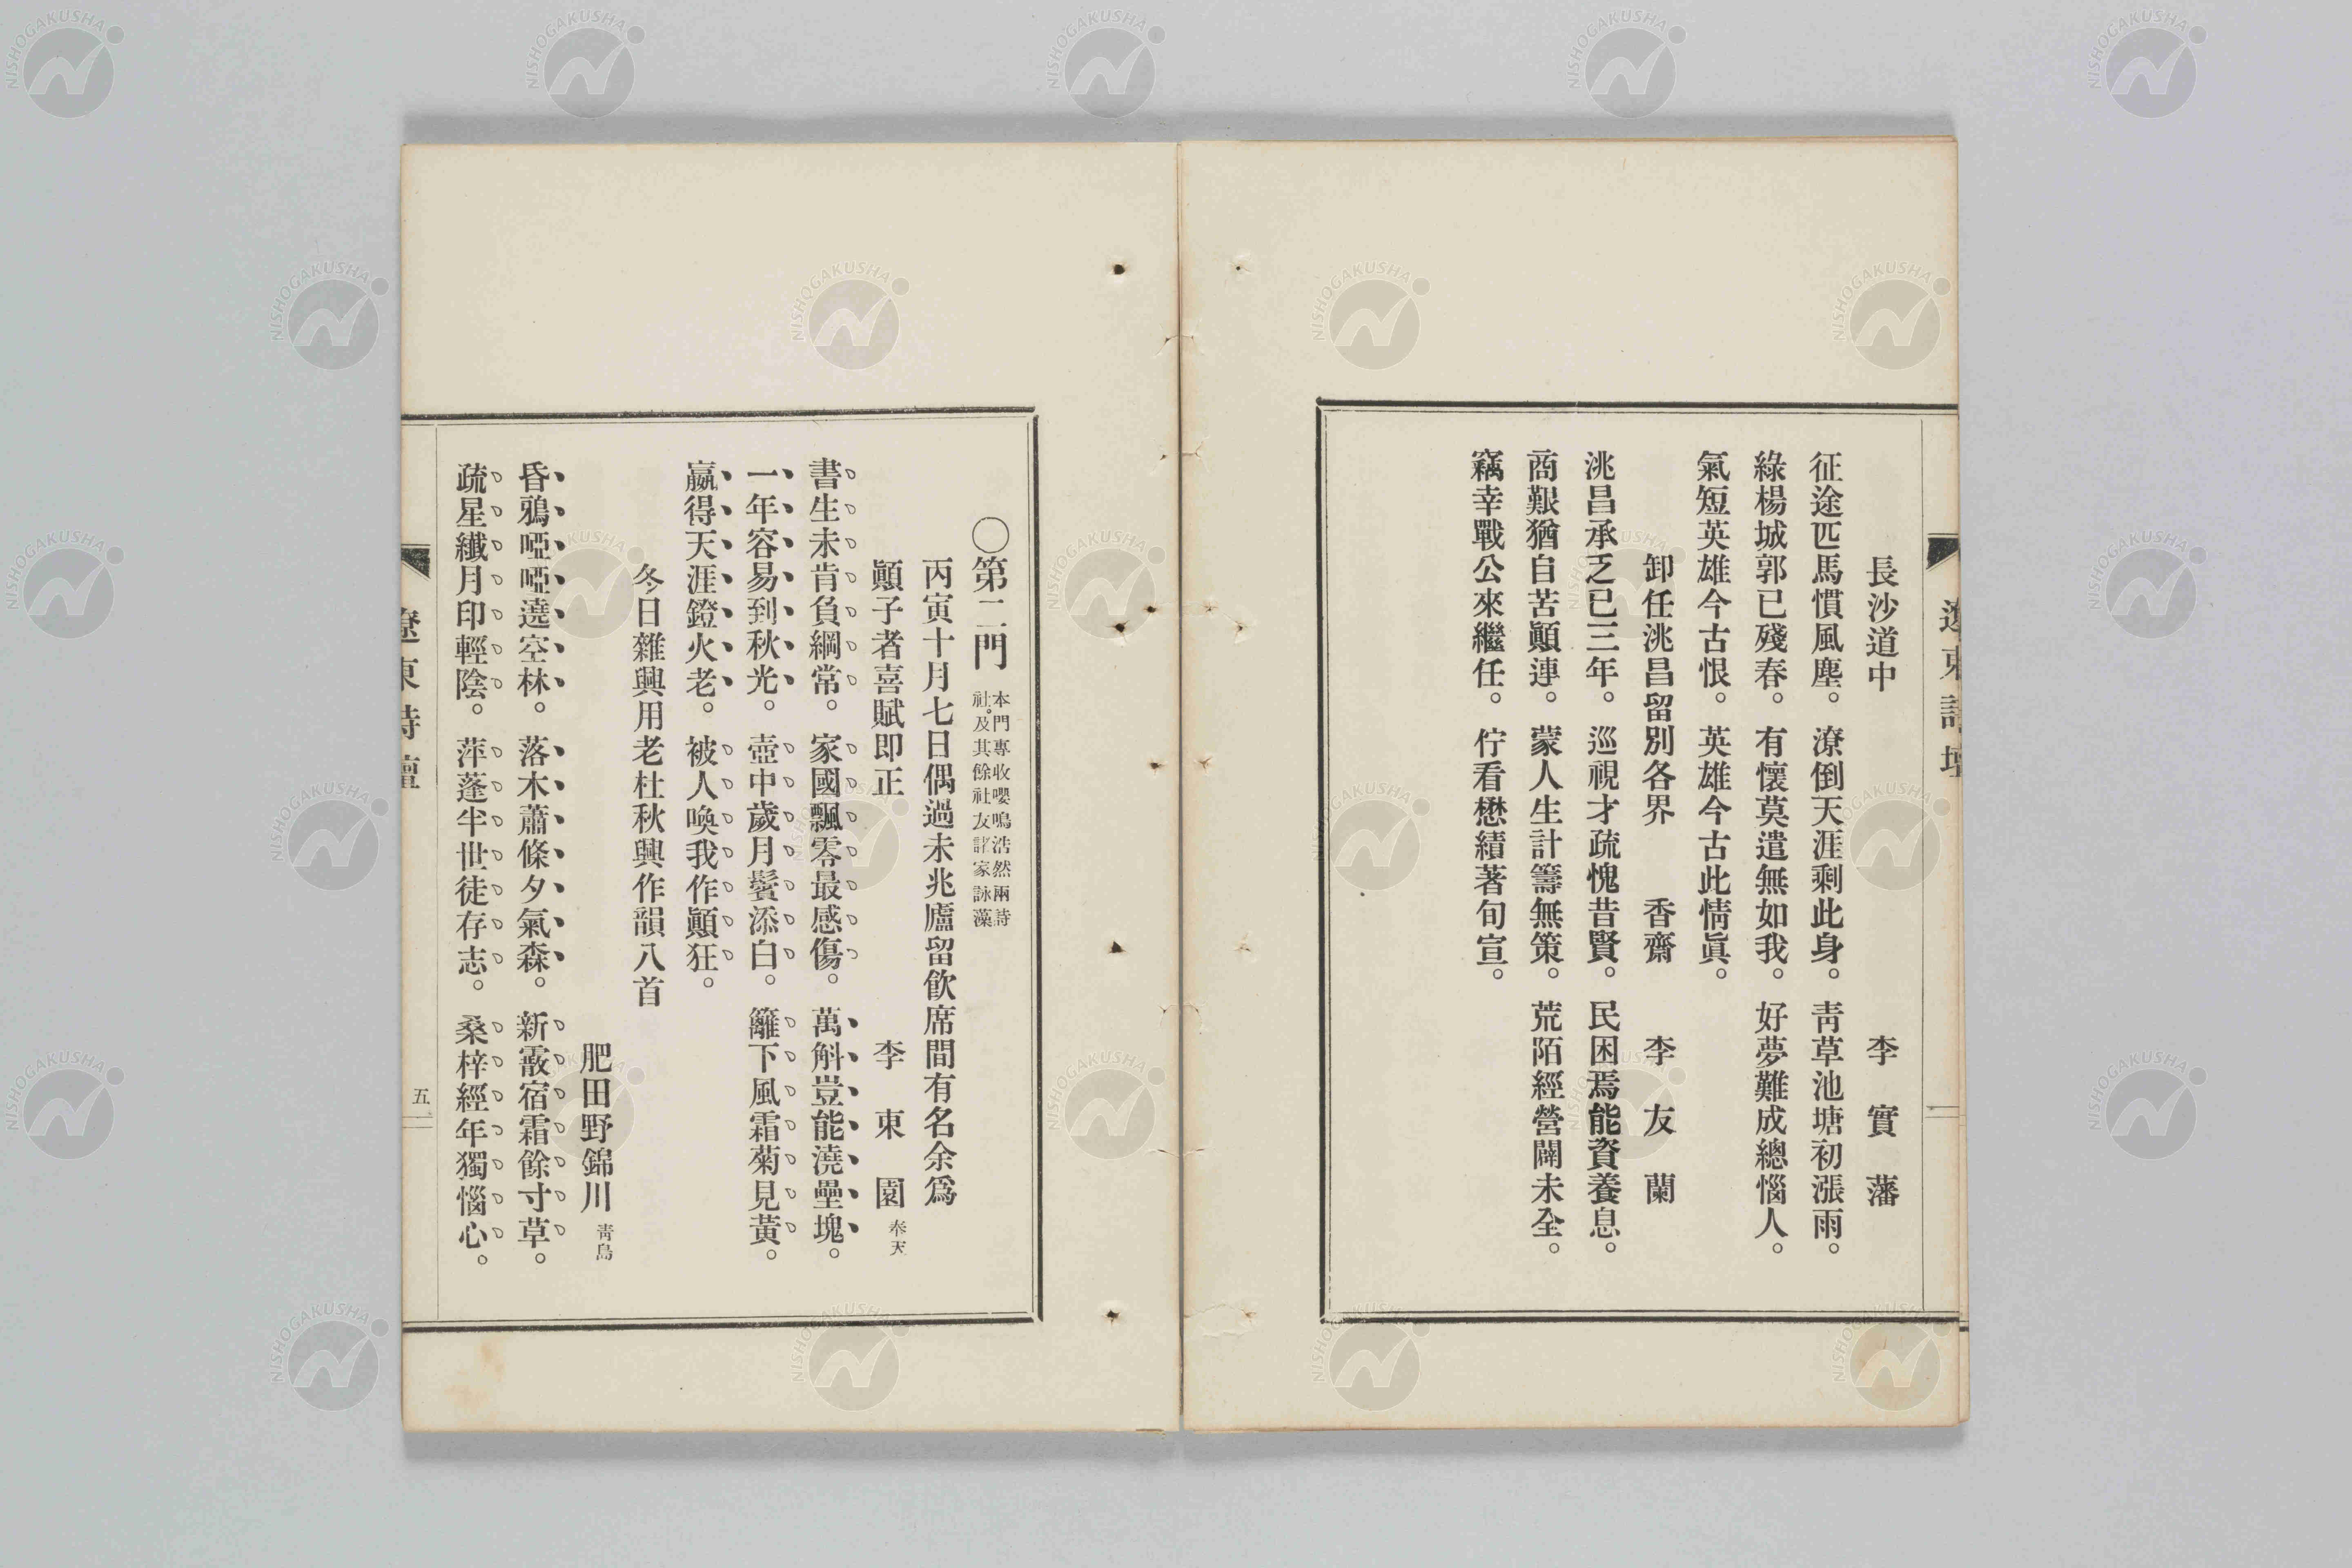 遼東詩壇
長沙道中　李實藩
征途匹馬慣風塵。潦倒天涯剩此身。靑草池塘初漲雨。
綠楊城郭已殘春。有懷莫遣無如我。好夢難成總惱人。
氣短英雄今古恨。英雄今古此情眞。
卸任洮昌留別各界　香齋　李友蘭
洮昌承乏已三年。巡視才疏愧昔賢。民困焉能資養息。
商艱猶自苦顚連。蒙人生計籌無策。荒陌經營闢未全。
竊幸戰公來繼任。佇看懋績著旬宣。
〇第二門　本門專收嚶鳴浩然兩詩
社。及其餘社友諸家詠藻
丙寅十月七日偶過未兆廬留飮席間有名余爲
顚子者喜賦即正　李東園　奉天
書生未肯負綱常。家國飄零最感傷。萬斛豈能澆壘塊。
一年容易到秋光。壺中歲月鬢添白。籬下風霜菊見黃。
贏得天涯鐙火老。被人喚我作顚狂。
冬日雜興用老杜秋興作韻八首
肥田野錦川　靑島
昏鴉啞啞遶空林。落木蕭條夕氣森。新霰宿霜餘寸草。
疏星纖月印輕陰。萍蓬半世徒存志。桑梓經年獨惱心。
遼東詩壇
五
NISHOGAKUSHA